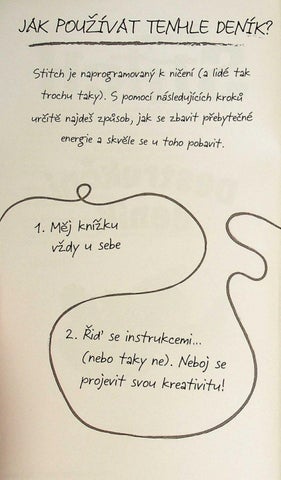 JAK POUŽÍVAT TENHLE DENÍK?
Stitch je naprogramovaný k ničení (a lidé tak
trochu taky). S pomocí následujících kroků
určitě najdeš způsob, jak se zbavit přebytečné
energie a skvěle se u toho pobavit.
1. Měj knížku
vždy u sebe
2. Řiď se instrukcemi...
(nebo taky ne). Neboj se
projevit svou kreativitu!